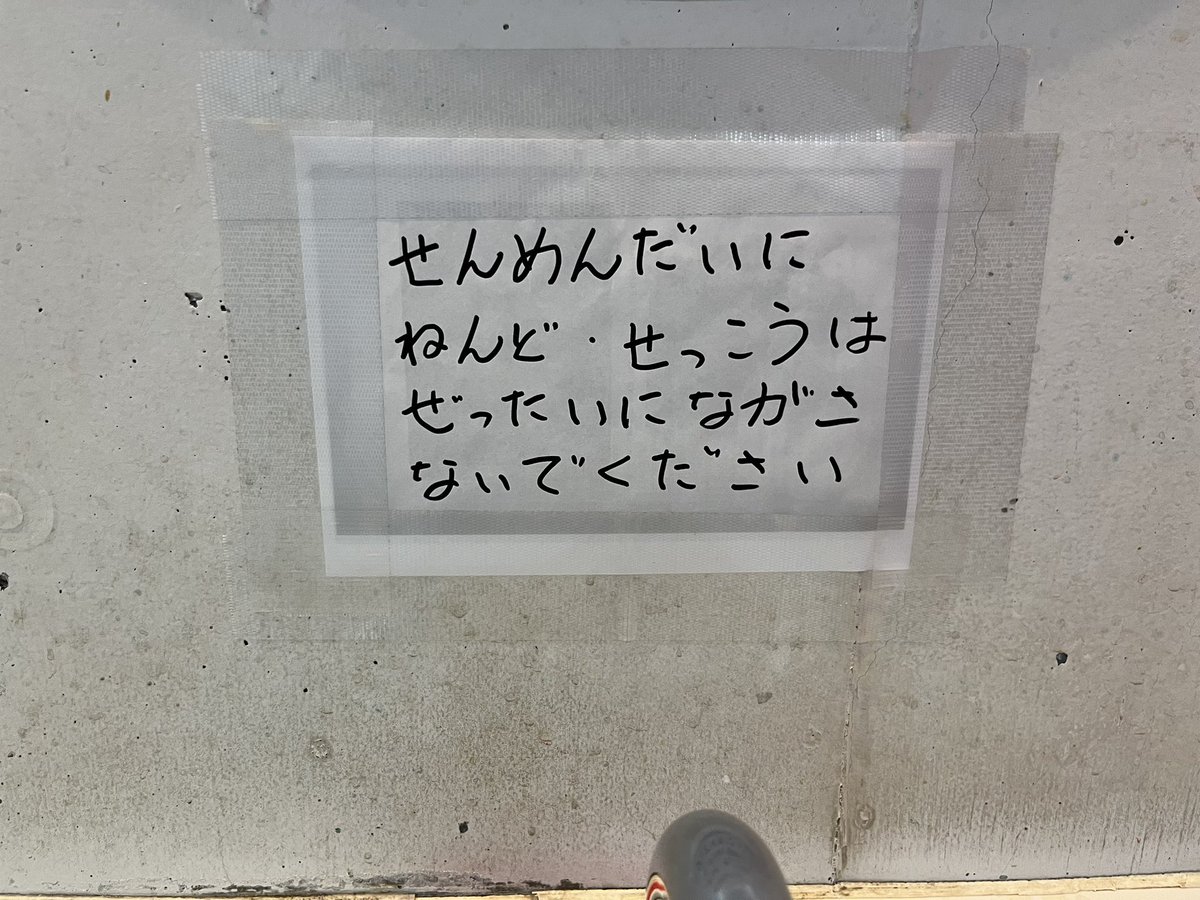 せんめんだいに
ねんど・せっこうは
ぜったいにながさ
ないでください